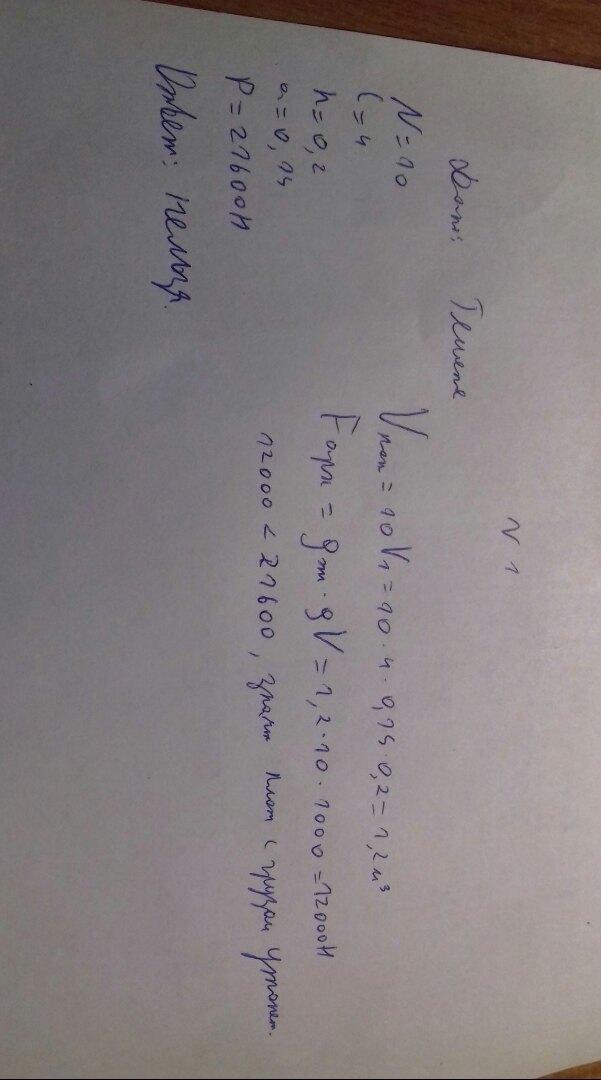 N 1
Дано: Решение
N = 10
l = 4
h = 0,2
a = 0,15
P = 21600Н
Vпл = 10V₁ = 10 · 4 · 0,15 · 0,2 = 1,2 м³
Fарх = ρж · gV = 1,2 · 10 · 1000 = 12000Н
12000 < 21600, значит плот с грузом утонет.
Ответ: нельзя.